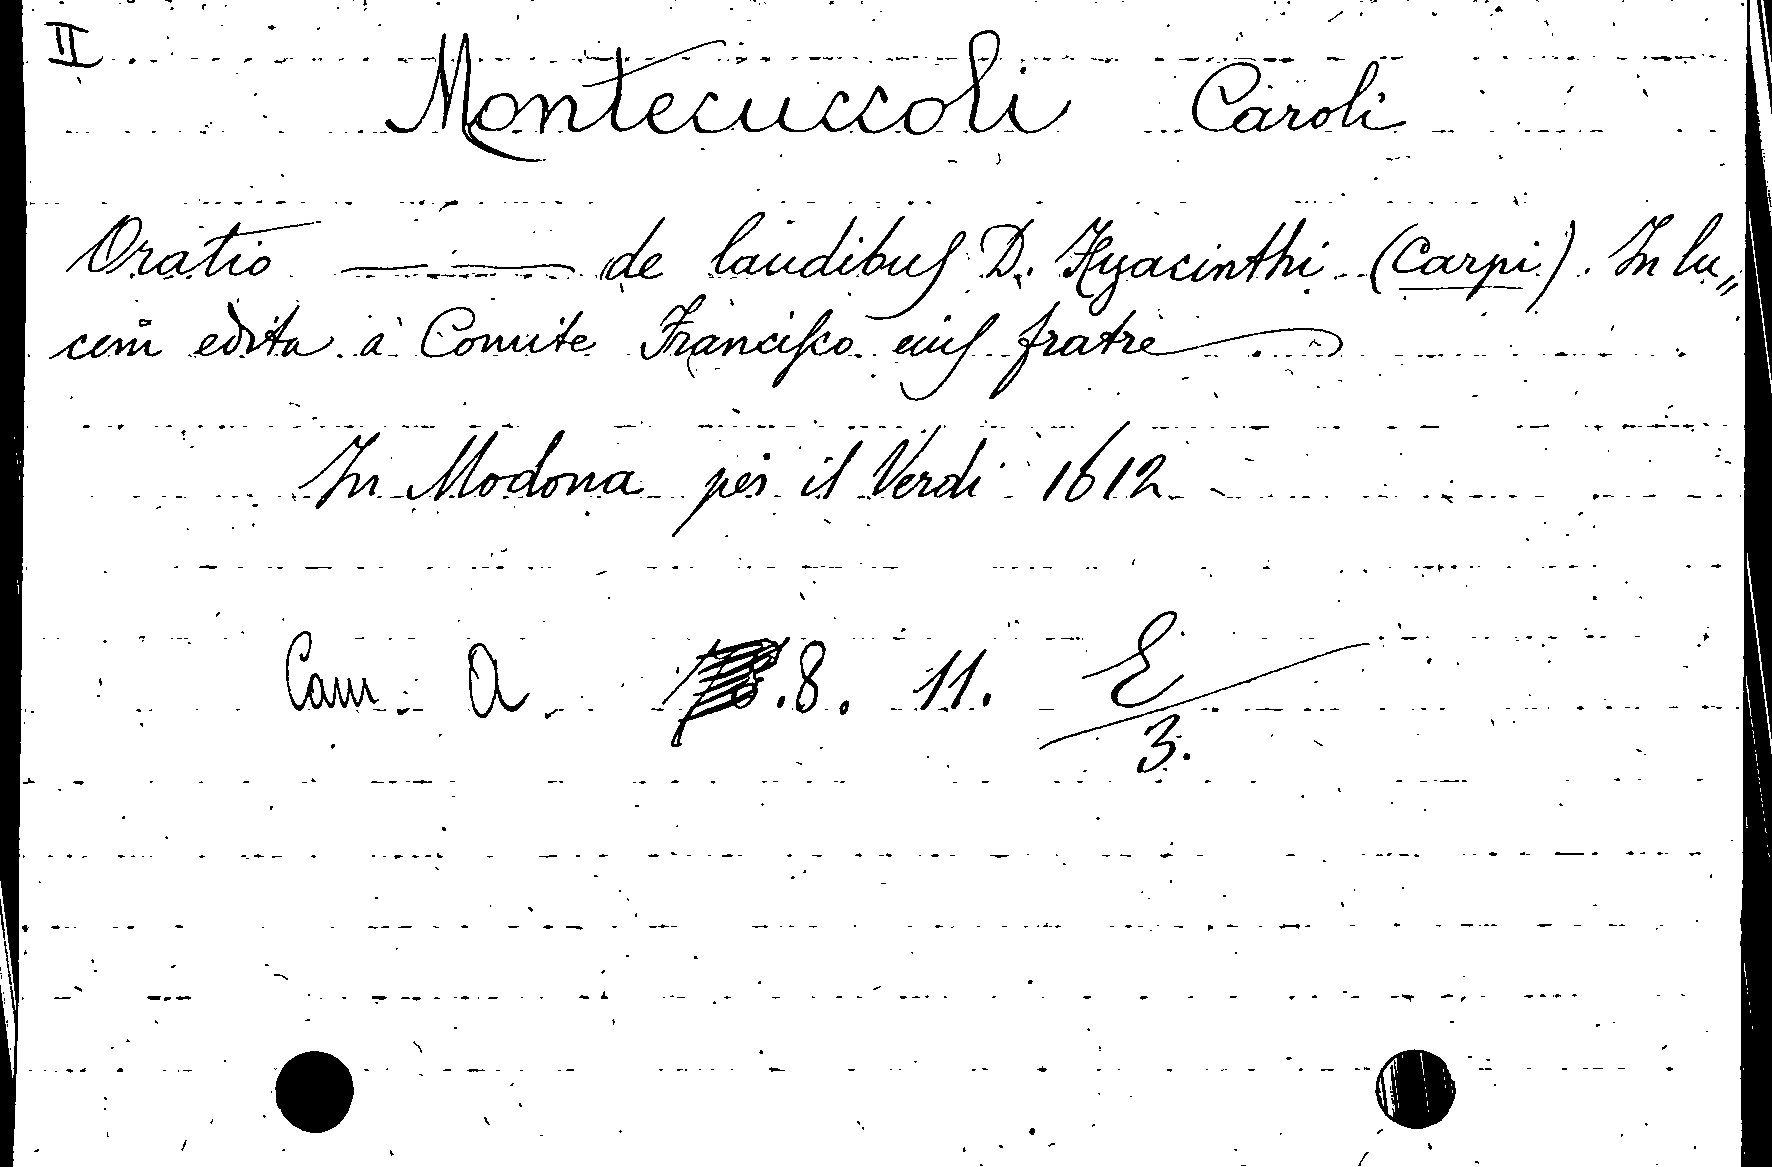 II
Montecuccoli Caroli
Oratio —— de laudibus D. Hyacinthi (Carpi). In lu„
cem edita à Comite Francisco eius fratre
In Modona per il Verdi 1612
Cam. A. .8. 11. E
3.